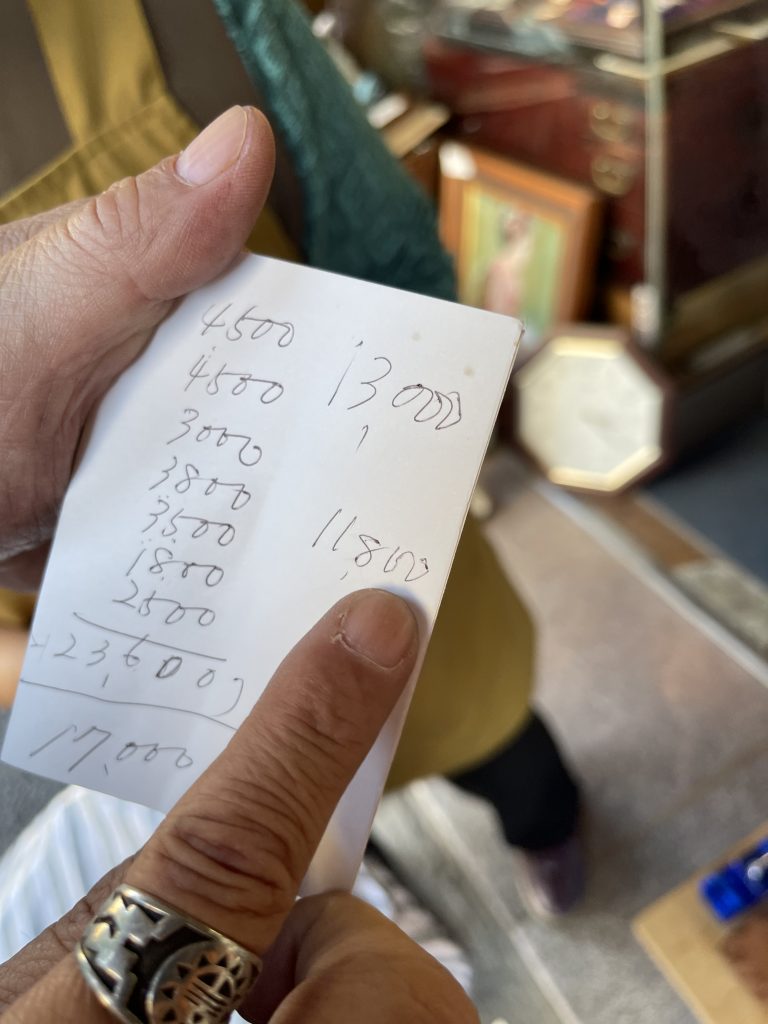 4500
4500
3000
3800
3500
1800
2500
23,600
17,000
13,000
11,800